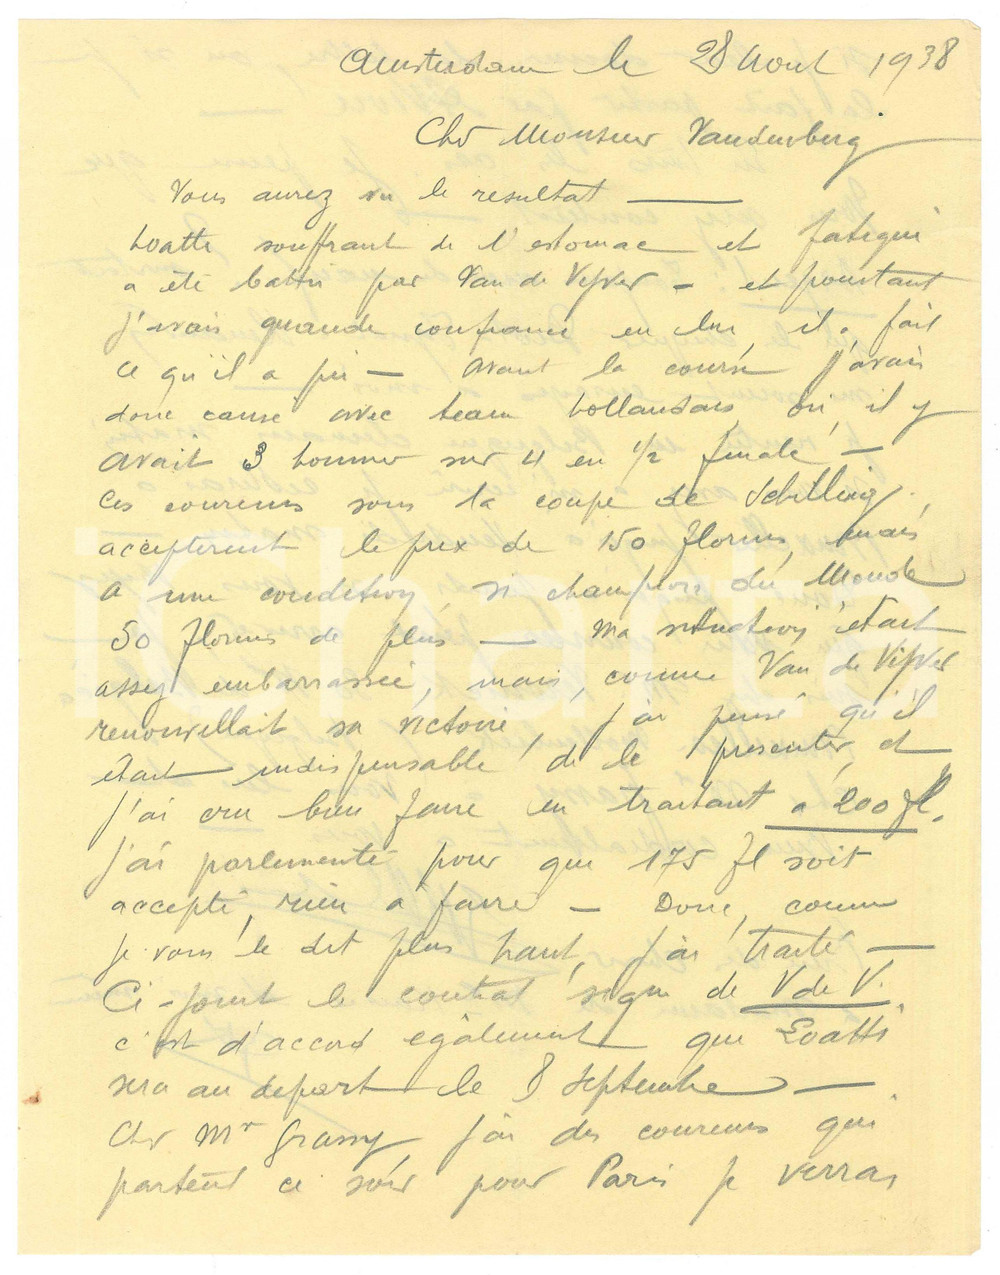 Amsterdam le 28 Aout 1938
Cher Monsieur Vandenberg
Vous aurez vu le resultat —
Loatti souffrant de l'estomac et fatigué
a été battu par Van de Vijver — et pourtant
j'avais grande confiance en lui, il a fait
ce qu'il a pu — Avant la course j'avais
donc causé avec team hollandais, où il y
avait 3 hommes sur 4 en 1/2 finale —
Ces coureurs sous la coupe de Schilling,
accepterent le prix de 150 florins, mais
a une condition, si champion du Monde
50 florins de plus — Ma situation était
assez embarrassée, mais, comme Van de Vijver
renouvellait sa victoire, j'ai pensé qu'il
était indispensable de le presenter, et
j'ai cru bien faire en traitant a 200 fl.
J'ai parlementé pour que 175 fl soit
accepté, rien a faire — Donc, comme
je vous le dit plus haut, j'ai traité —
Ci-joint le contrat signé de V de V.
c'est d'accord également que Loatti
sera au depart le 8 Septembre —
Cher Mr Grassy j'ai des coureurs qui
partent ce soir pour Paris je verrai
iCharta